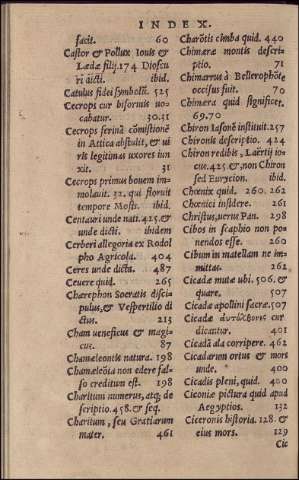 INDEX.
facit. 60
Castor & Pollux Iouis &
Lædæ filij. 174 Dioscu
ri dicti. ibid.
Catulus fidei symbolũ. 525
Cecrops cur biformis uo-
cabatur. 30.31
Cecrops ferinã cõmistionẽ
in Attica abstulit, & ui
ris legitimas uxores iun
xit. 31
Cecrops primus bouem im-
molauit. 32. qui floruit
tempore Mosis. ibid.
Centauri unde nati. 425. &
unde dicti. ibidem
Cerberi allegoria ex Rodol
pho Agricola. 404
Ceres unde dicta. 487
Ceuere quid. 265
Chærephon Socratis disci-
pulus, & Vespertilio di
ctus. 213
Cham ueneficus & magi-
cus. 87
Chamæleontis natura. 198
Chamæleõta non edere fal-
so creditum est. 198
Charitum numerus, atq; de
scriptio. 458. & seq.
Charitum, seu Gratiarum
mater. 461
Charõtis cĩmba quid. 440
Chimæræ montis descri-
ptio. 71
Chimarrus à Bellerophõte
occisus fuit. 70
Chimæra quid significet.
69.70
Chiron Iasonẽ instituit. 257
Chironis descriptio. 424
Chiron redibis, Laërtij io-
cus. 425. &, non Chiron
sed Eurycion. ibid.
Chœnix quid. 260. 262
Chœnici insidere. 261
Christus, uerus Pan. 298
Cibos in scaphio non po-
nendos esse. 260
Cibum in matellam ne im-
mittas. 262
Cicadæ mutæ ubi. 506. &
quare. 507
Cicadæ apollini sacræ. 507
Cicadæ αυτόχθονες cur
dicantur. 401
Cicadã ala corripere. 462
Cicadarum ortus & mors
unde. 400
Cicadis pleni, quid. 400
Ciconiæ pictura quid apud
Aegyptios. 132
Ciceronis historia. 128. &
eius mors. 129
Cic